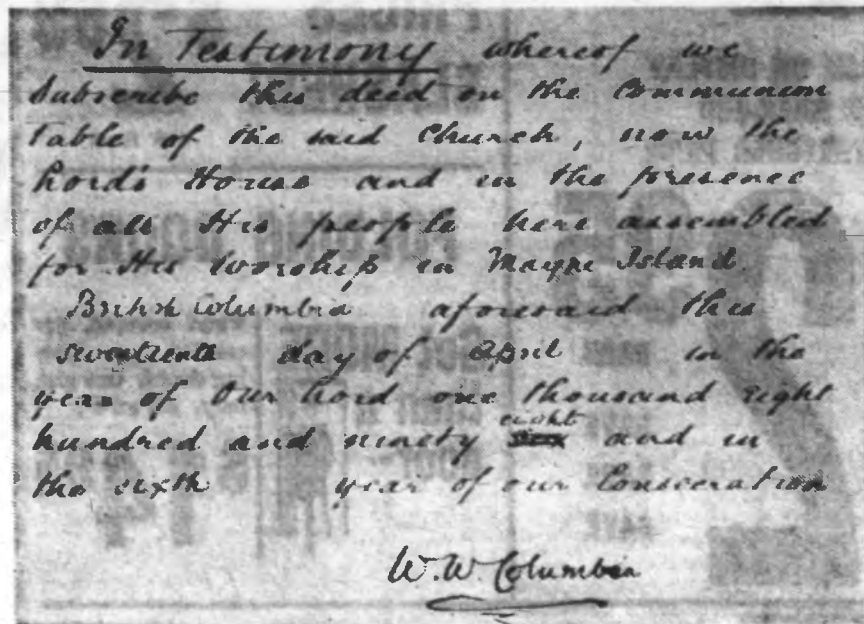 In Testimony whereof we
Subscribe this deed on the Communion
Table of the said Church, now the
Lord's House and in the presence
of all His people here assembled
for His Worship in Mayne Island
British Columbia aforesaid this
seventeenth day of April in the
year of Our Lord one thousand eight
hundred and ninety eight and in
the sixth year of our Consecration
W. W. Columbia